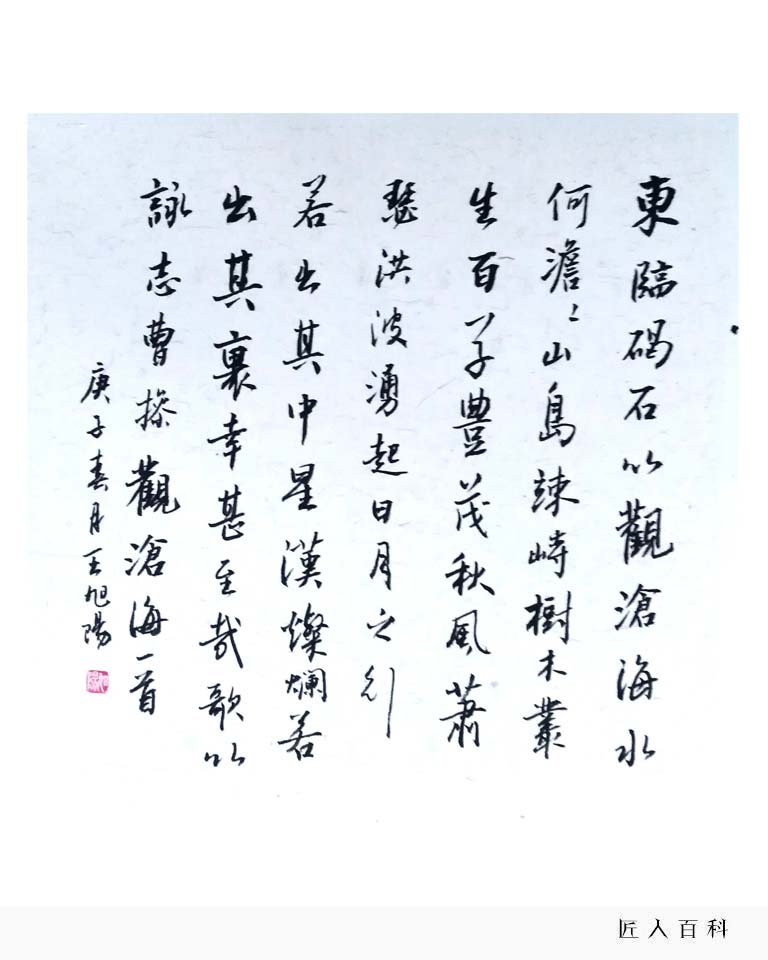 東臨碣石以觀滄海水
何澹〻山島竦峙樹木叢
生百草豐茂秋風蕭
瑟洪波湧起日月之行
若出其中星漢燦爛若
出其裏幸甚至哉歌以
詠志曹操觀滄海一首
庚子春月王旭陽
匠人百科